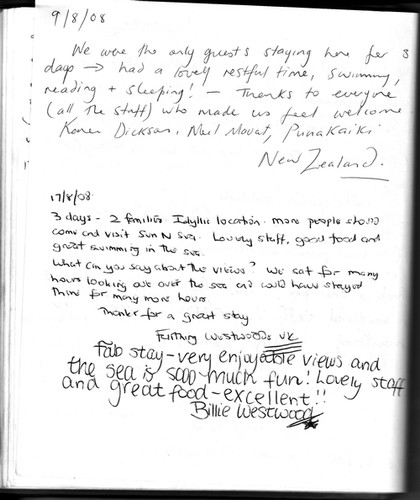 9/8/08
We were the only guests staying here for 3
days → had a lovely restful time, swimming,
reading + sleeping! - Thanks to everyone
(all the staff) who made us feel welcome
Karen Dickson, Neil Mouat, Punakaiki
New Zealand.
17/8/08
3 days - 2 families Idyllic location. more people should
come and visit Sun N Sea. Lovely staff, good food and
great swimming in the sea.
What can you say about the views? We sat for many
hours looking out over the sea and could have stayed
there for many more hours.
Thanks for a great stay
Westwoods UK
Fab stay-very enjoyable views and
the sea is sooo much fun! Lovely staff
and great food-excellent!!
Billie Westwood